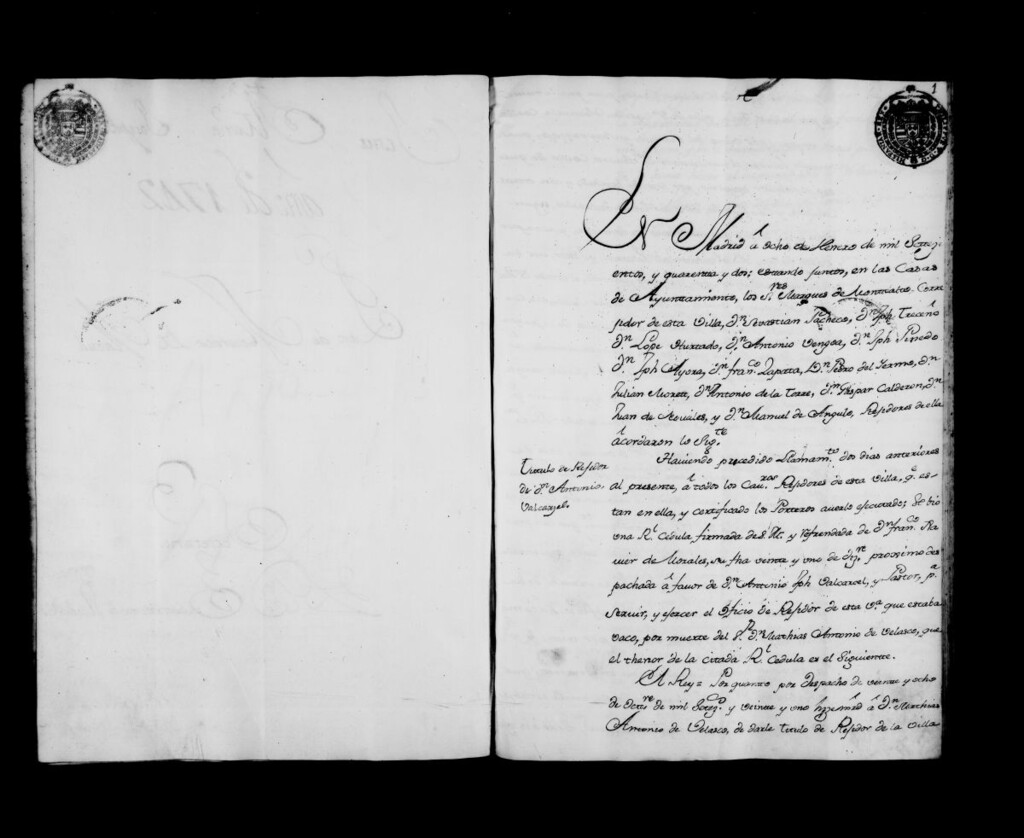 1
En Madrid â ocho de Henero de mil Setez
ientos, y quarenta y dos; estando juntos, en las Casas
de Ayuntamiento, los S.res Marques de Montealto. Corre
jidor de esta Villa, D.n Sevastian Pacheco, D.n Jph
D.n Lope Hurtado, D.n Antonio Vengoa, D.n Jph Pinedo
D.n Jph Ayora, D.n fran.co Zapata, D.n Pedro del Yermo, D.n
Julian Moret, D.n Antonio de la Torre, D.n Gaspar Calderon, D.n
Juan de Novales, y D.n Manuel de Angulo, Rejidores de ella
acordaron lo Sig.te
Haviendo precedido Llamam.to dos dias anteriores
al presente, â todos los Cau.ros Rejidores de esta Villa, q.e es-
tan en ella, y certificado los Porteros averlo ejecutado; Se vio
una R.l Cedula firmada de S. M. y refrendada de D.n fran.co Xa
vier de Morales, su fha veinte y uno de Diz.re proximo des
pachada â favor de D.n Antonio Jph Valcarcel, y Pastor, p.a
servir, y ejercer el Oficio de Rejidor de esta V.a que estaba
vaco, por muerte del S.r D.n Mathias Antonio de Velasco, que
el thenor de la citada R.l Cedula es el Siguiente.
El Rey = Por quanto por despacho de veinte y ocho
de de mil Setez.os y veinte y uno hize mrd â D.n Mathias
Antonio de Velasco, de darle titulo de Rejidor de la Villa
Titulo de Rejidor
de D.n Antonio
Valcarzel.